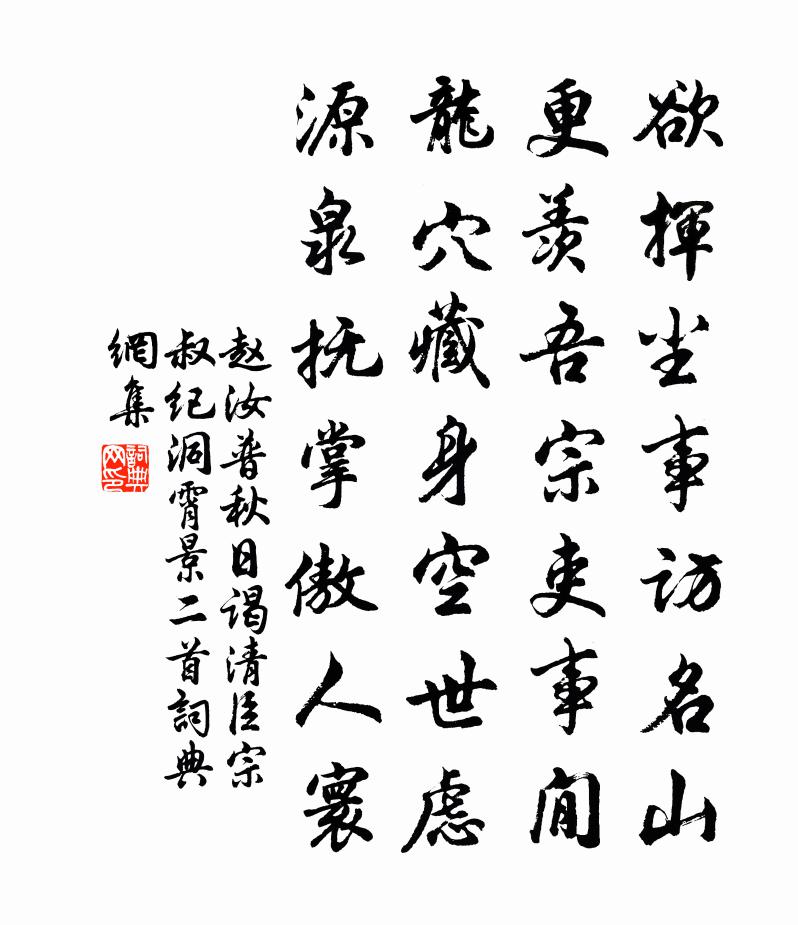 欲揮尘事訪名山
更羨吾宗吏事閒
龍穴藏身空世慮
源泉抚掌傲人寰
赵汝普秋日谒清臣宗
叔纪洞霄景二首詞典
網集
詞典網印